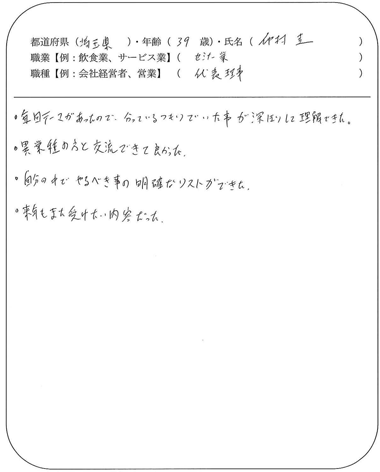 都道府県（埼玉県）・年齢（39 歳）・氏名（中村 圭）
職業【例：飲食業、サービス業】（セミナー業）
職種【例：会社経営者、営業】（代表理事）
・毎日テーマがあったので、分っているつもりでいた事が深ぼりして理解できた。
・異業種の方と交流できて良かった。
・自分の中でやるべき事の明確なリストができた。
・来年もまた受けたい内容だった。